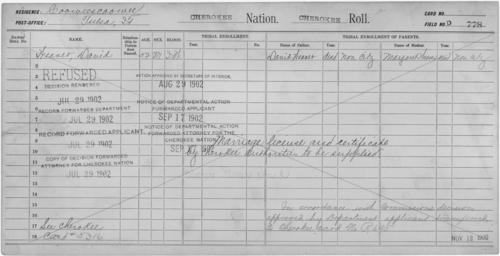 RESIDENCE: Cooweescoowee
POST-OFFICE: Tulsa, I.T.
CHEROKEE Nation. CHEROKEE Roll.
CARD NO.
FIELD NO. D 778
NAME. AGE. SEX. BLOOD. TRIBAL ENROLLMENT. TRIBAL ENROLLMENT OF PARENTS.
Year. No. Name of Father. Year. Name of Mother. Year.
David M David dead Non Citz Margaret Non Citz
REFUSED
DECISION RENDERED
JUL 29 1902
RECORD FORWARDED DEPARTMENT
JUL 29 1902
RECORD FORWARDED APPLICANT
JUL 29 1902
COPY OF DECISION FORWARDED
ATTORNEY FOR CHEROKEE NATION
JUL 29 1902
ACTION APPROVED BY SECRETARY OF INTERIOR.
AUG 29 1902
NOTICE OF DEPARTMENTAL ACTION
FORWARDED APPLICANT
SEP 17 1902
NOTICE OF DEPARTMENTAL ACTION
FORWARDED ATTORNEY FOR THE
CHEROKEE NATION
SEP 17 1902
Marriage license and certificate
by Cherokee Authorities to be supplied
In accordance with Commission's decision
approved by Department applicant
to Cherokee card No. R
See Cherokee
Card #5316
NOV 18 1902